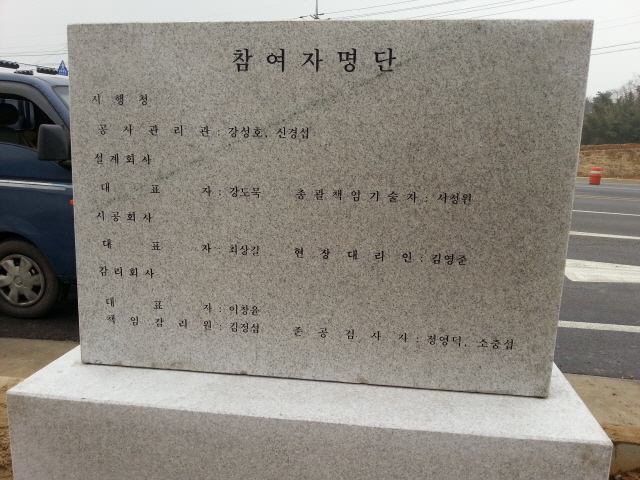 참여자명단
시행청
공사관리관 : 강성호, 신경섭
설계회사
대표자 : 강도묵 총괄책임기술자 : 서정원
시공회사
대표자 : 최상길 현장대리인 : 김영준
감리회사
대표자 : 이창율
책임감리원 : 김정섭 준공검사자 : 정영덕, 소충섭